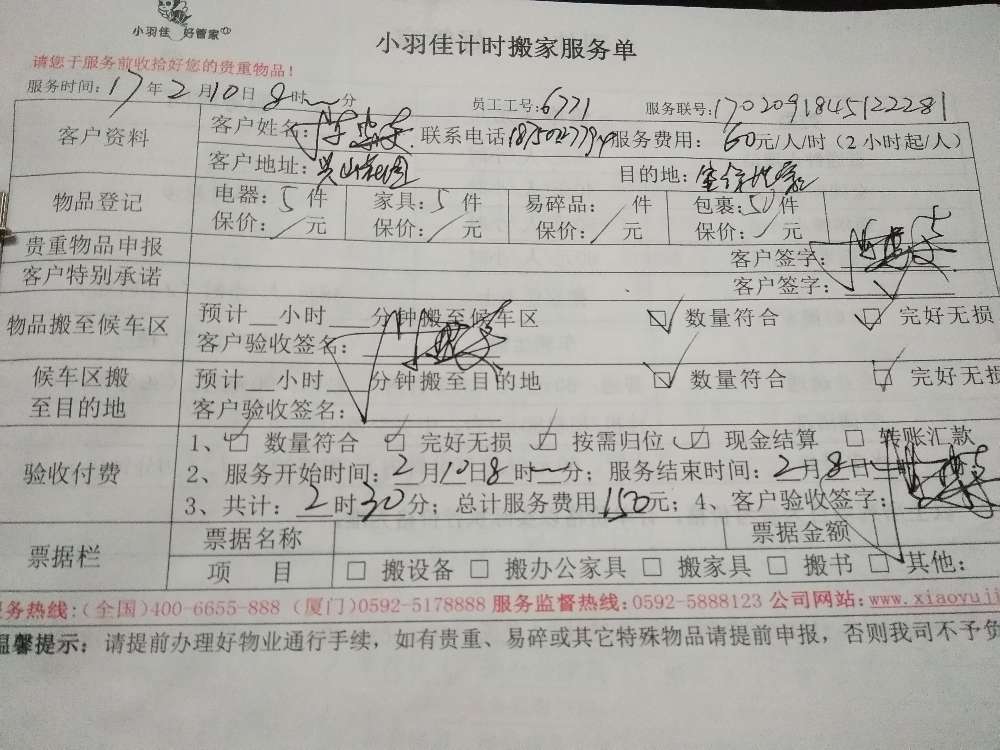 小羽佳 好管家
小羽佳计时搬家服务单
请您于服务前收拾好您的贵重物品！
服务时间：17年2月10日8时 分 员工工号：6771 服务联号：1702091845122281
客户资料 客户姓名： 联系电话 服务费用：60元/人/时（2小时起/人）
客户地址： 目的地：
物品登记 电器：5件 家具：5件 易碎品： 件 包裹：50件
保价：/元 保价：/元 保价：/元 保价：/元
贵重物品申报 客户签字：
客户特别承诺 客户签字：
物品搬至候车区 预计__小时___分钟搬至候车区 ☑ 数量符合 ☑ 完好无损
客户验收签名：
候车区搬至目的地 预计__小时___分钟搬至目的地 ☑ 数量符合 ☑ 完好无损
客户验收签名：
验收付费 1、☑ 数量符合 ☑ 完好无损 ☑ 按需归位 ☑ 现金结算 □ 转账汇款
2、服务开始时间：2月10日8时 分；服务结束时间：2月8日
3、共计：2时30分；总计服务费用150元；4、客户验收签字：
票据栏 票据名称 票据金额
项 目 □ 搬设备 □ 搬办公家具 □ 搬家具 □ 搬书 □ 其他：
务热线：（全国）400-6655-888（厦门）0592-5178888 服务监督热线：0592-5888123 公司网站：www.xiaoyuji
温馨提示：请提前办理好物业通行手续，如有贵重、易碎或其它特殊物品请提前申报，否则我司不予负